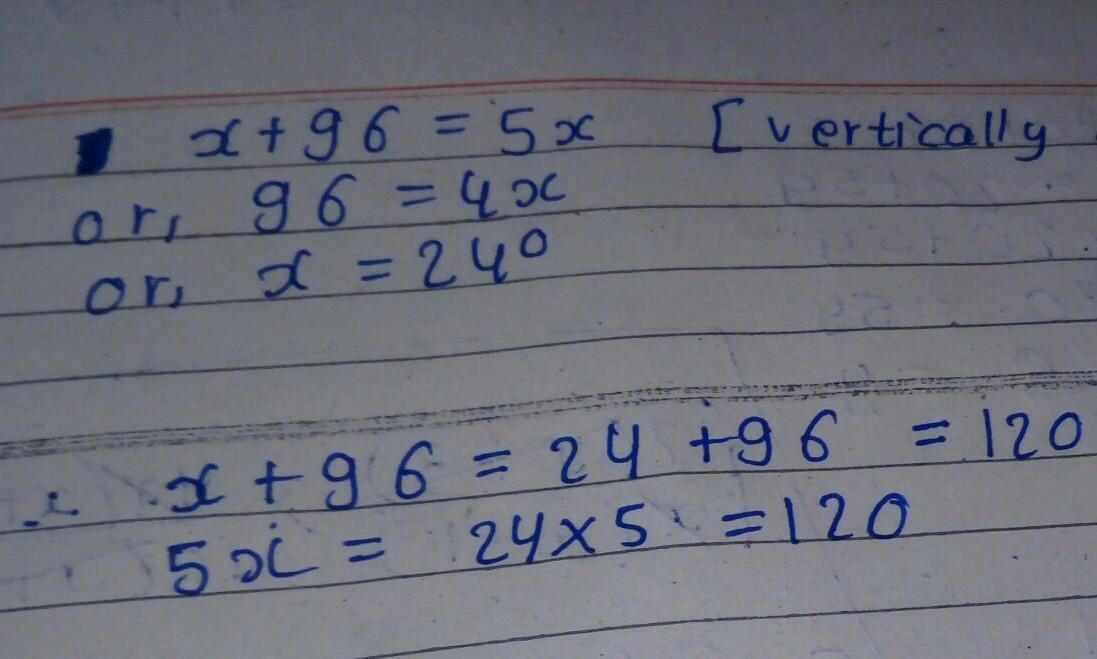 x + 96 = 5x [vertically
or, 96 = 4x
or, x = 24⁰
∴ x + 96 = 24 + 96 = 120
5x = 24 × 5 = 120